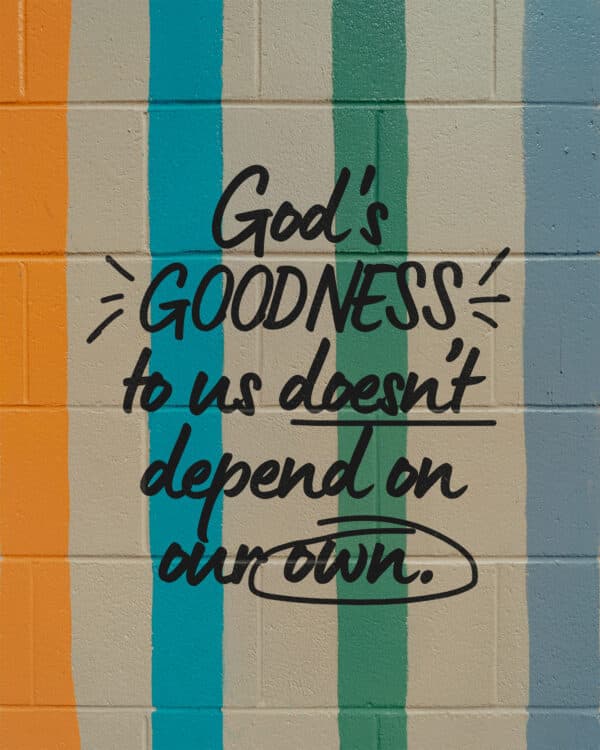 God's
GOODNESS
to us doesn't
depend on
our own.